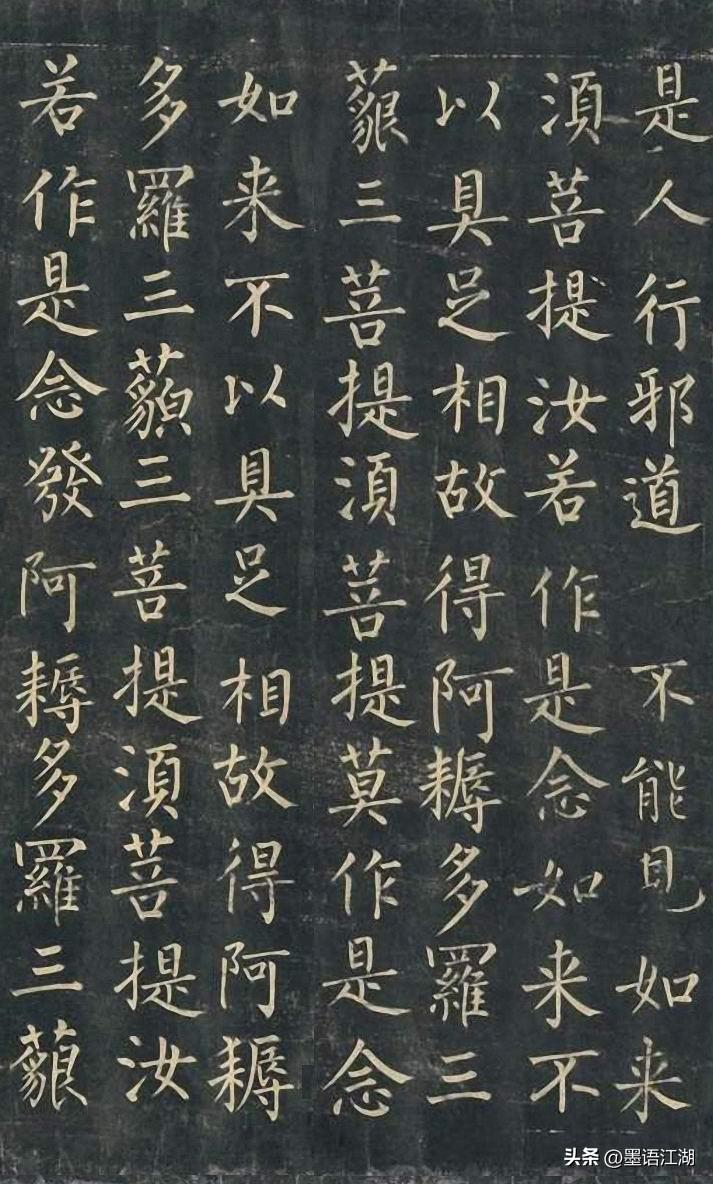 是人行邪道 不能見如来
湏菩提汝若作是念如来不
以具足相故得阿耨多羅三
藐三菩提湏菩提莫作是念
如来不以具足相故得阿耨
多羅三藐三菩提湏菩提汝
若作是念發阿耨多羅三藐
头条 @墨语江湖